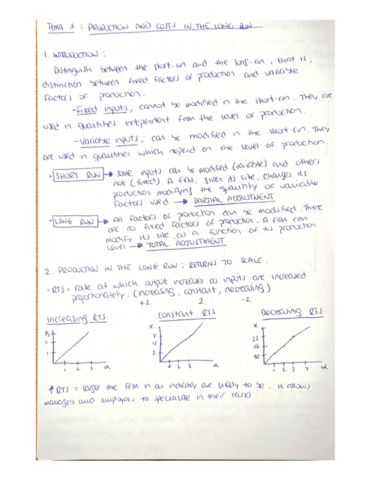 TEMA 1: PRODUCTION AND COSTS IN THE LONG RUN
1. INTRODUCTION:
Distinguish between the short-run and the long-run, that is,
distinction between fixed factors of production and variable
factors of production.
- Fixed inputs, cannot be modified in the short-run. They are
used in quantities independent from the level of production.
- Variable inputs, can be modified in the short-run. They
are used in quantities which depend on the level of production.
· SHORT RUN → Some inputs can be modified (variable) and others
not (fixed). A firm, given its size, changes its
production modifying the quantity of variable
factors used → PARTIAL ADJUSTMENT
· LONG RUN → All factors of production can be modified. There
are no fixed factors of production. A firm can
modify its size, as a function of its production
level → TOTAL ADJUSTMENT
2. PRODUCTION IN THE LONG RUN: RETURNS TO SCALE.
· RTS = rate at which output increases as inputs are increased
proportionately. (increasing, constant, decreasing)
+2 2 -2
increasing RTS constant RTS Decreasing RTS
x x x
1 2 3 α
1 2 3 α
1 2 3 4 α
↑ RTS = larger the firm in an industry are likely to be. It allows
managers and employees to specialize in their tasks.